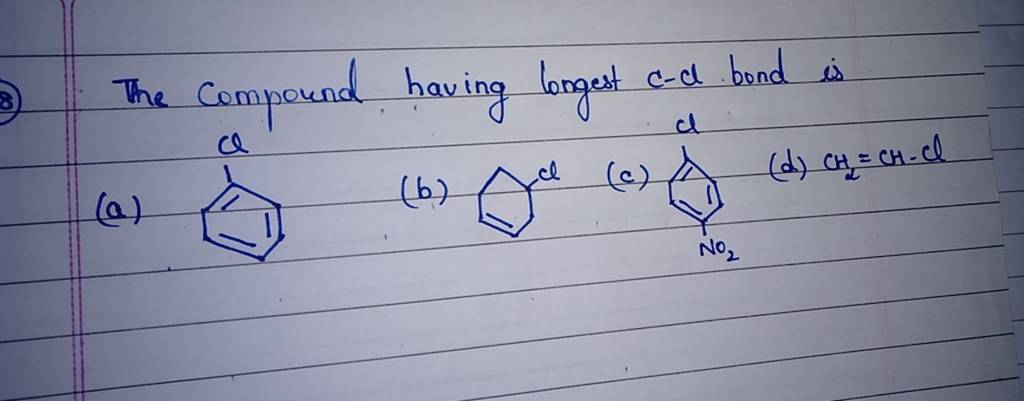 8
The Compound having longest C-Cl bond is
(a) Cl
(b) Cl
(c) Cl NO₂
(d) CH₂=CH-Cl